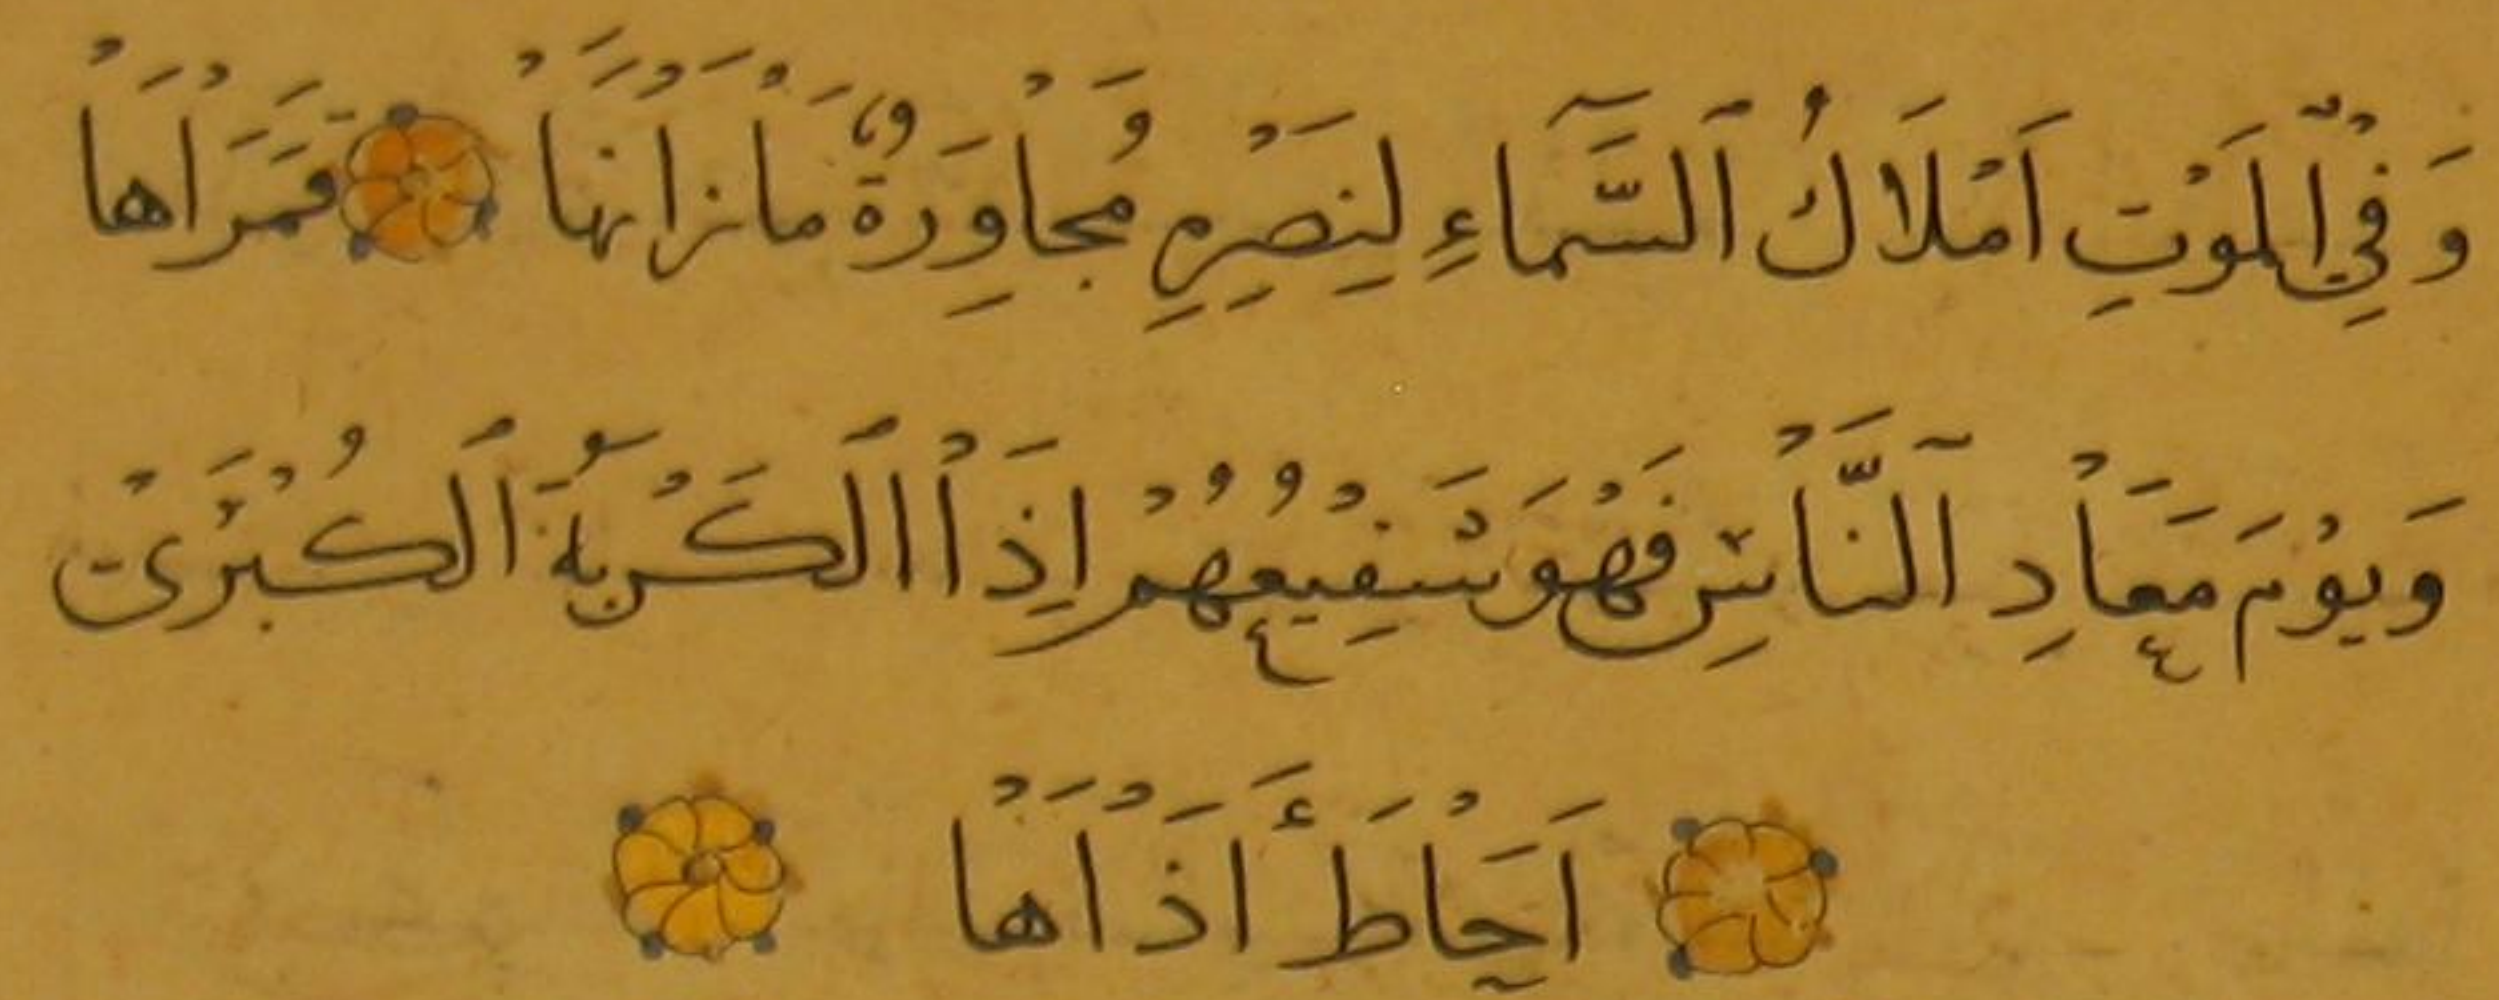 وَفِي الْمَوْتِ اَمْلَاكُ اَلسَّمَآءِ لِنَصْرِهِ مُجَاوِرَةٌ مَا زَانَهَا قَمَرَاهَا
وَيَوْمَ مَعَادِ اَلنَّاسِ فَهْوَ شَفِيعُهُمْ اِذَا اَلكَرْبَةُ اَلكُبْرَى
اَحَاطَ أَذَاهَا